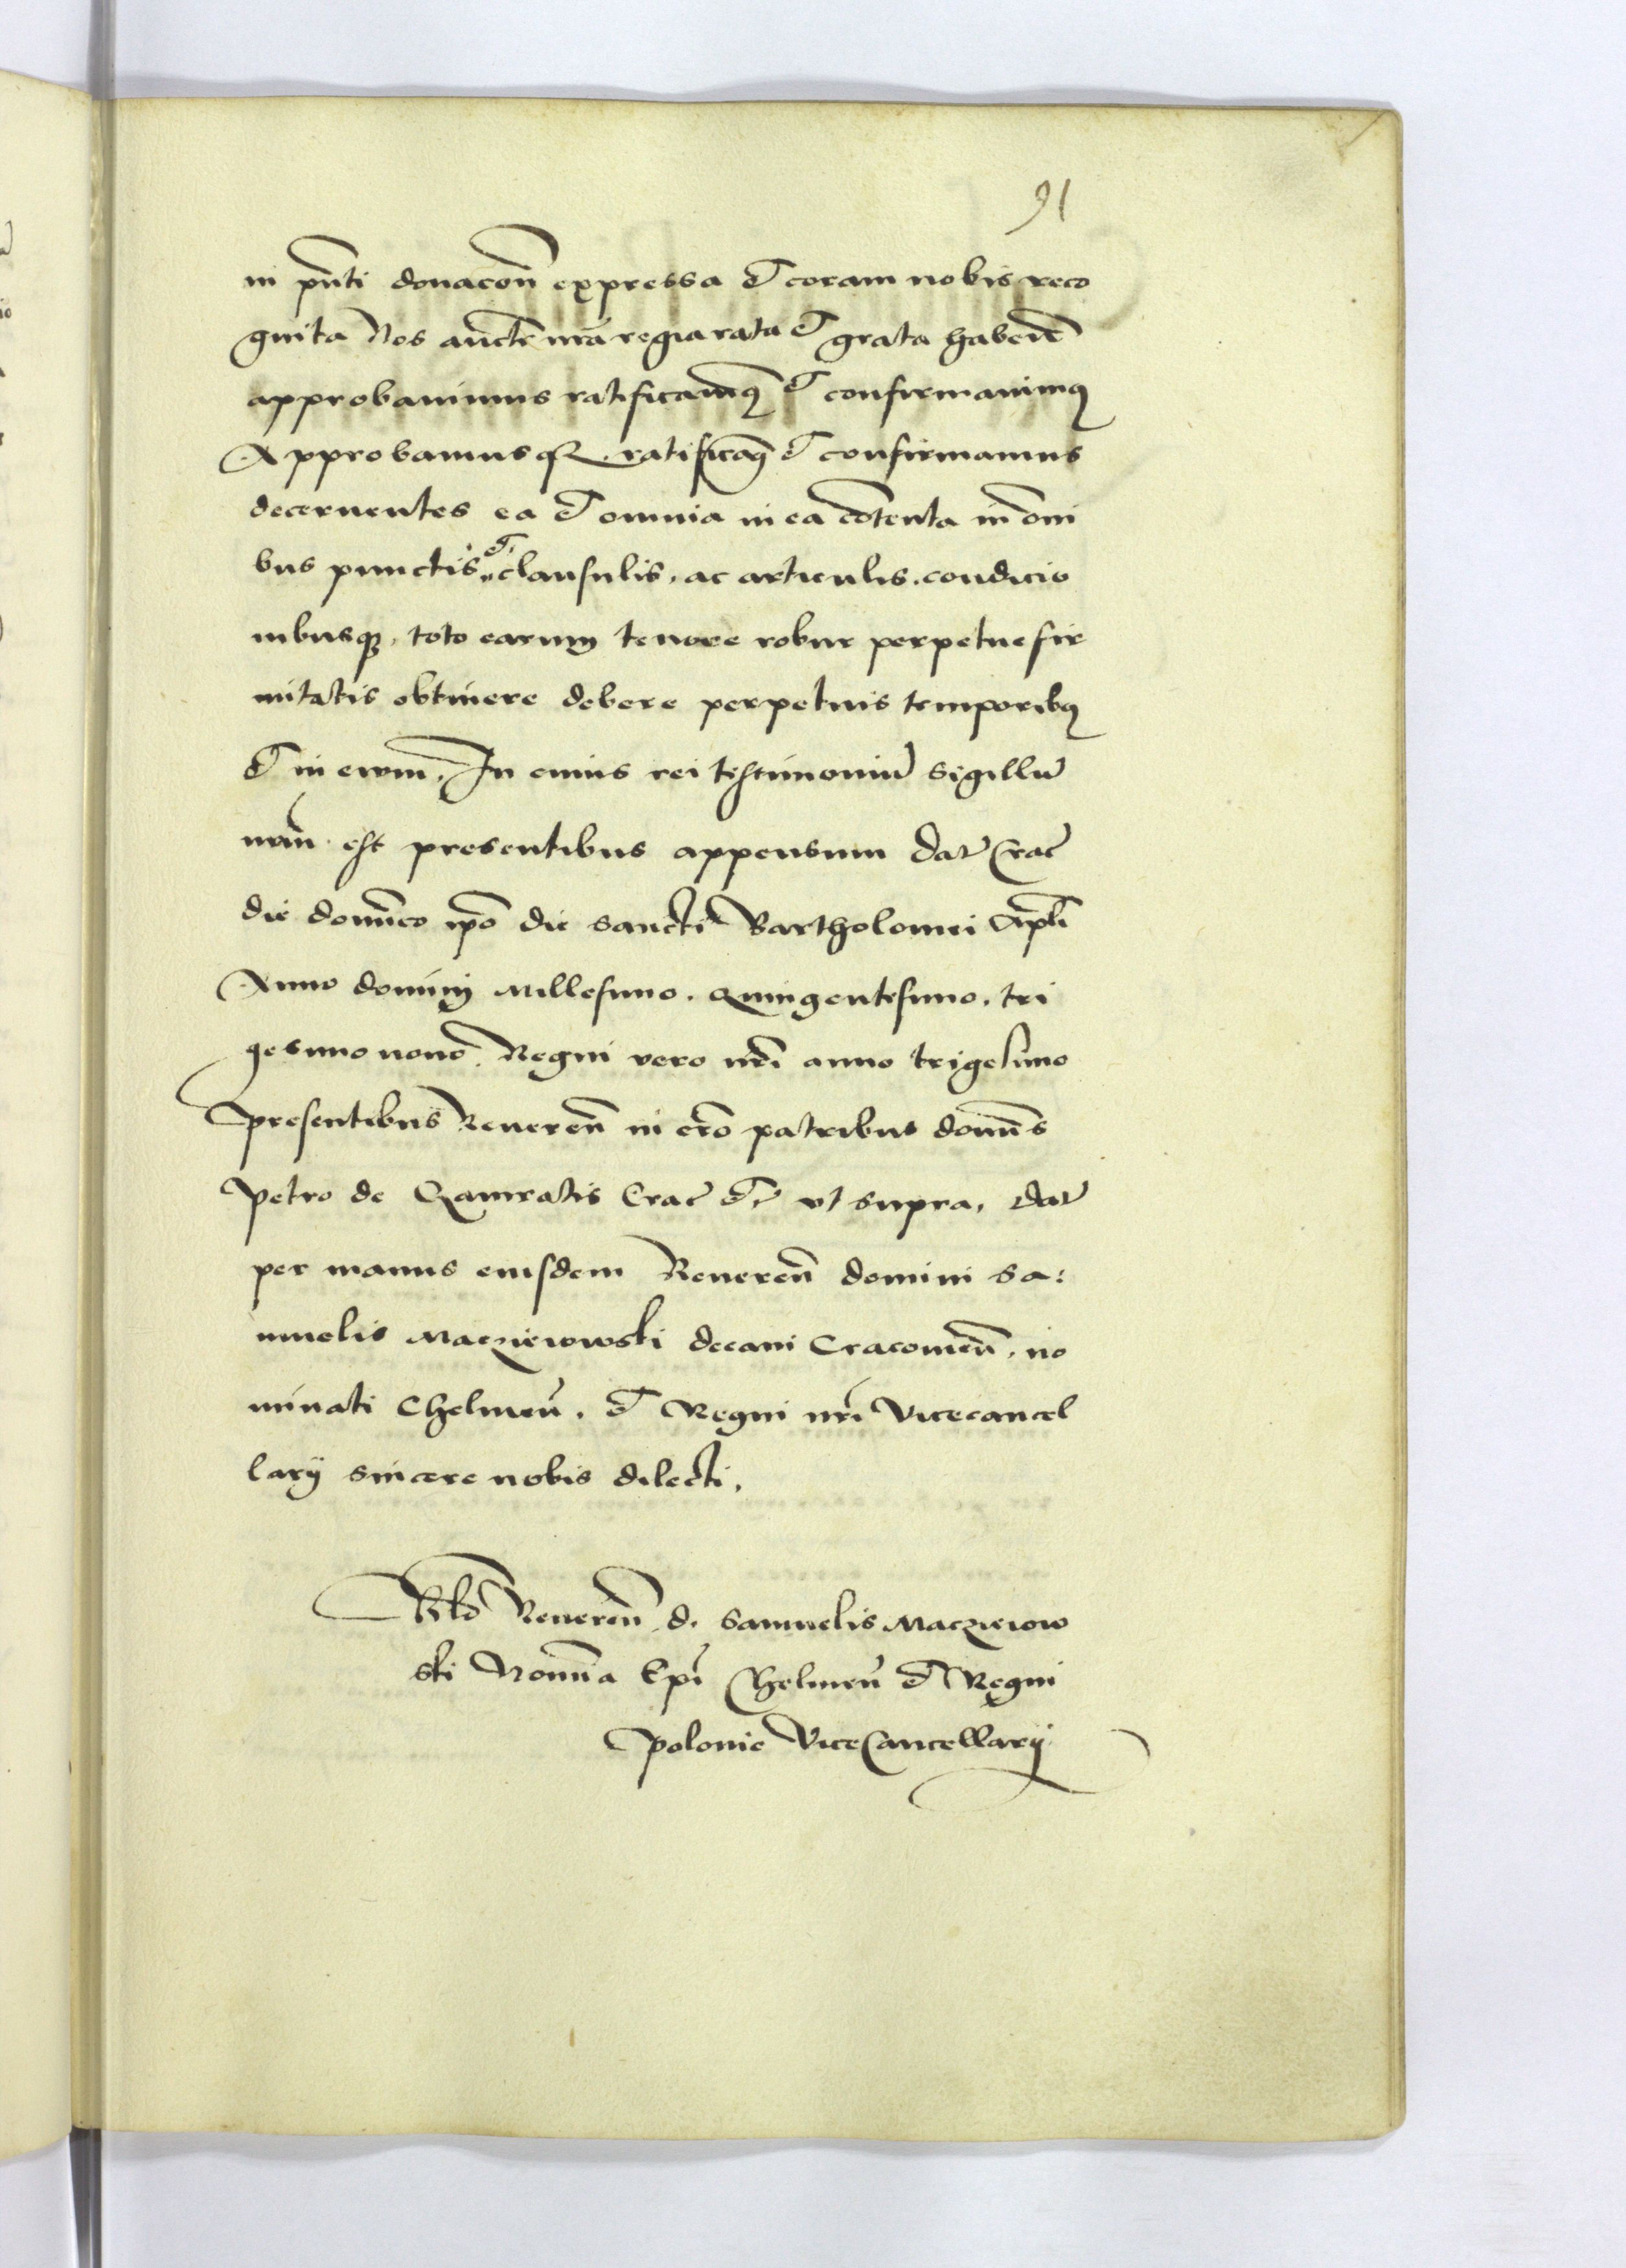 91
in pñti donacõn expressa et coram nobis reco
gnita Nos auctẽ nrã regia rata et grata habeñ
approbavimus ratificavimꝯ et confirmavimꝯ
Approbamusqꝫ ratificamꝯ et confirmamus
decernentes ea et omnia in ea cõtenta in õni
bus punctis et clausulis, ac articulis. condicio
nibusqꝫ, toto earum tenore robur perpetue fir
mitatis obtinere debere perpetuis temporibꝯ
et in evum, In cuius rei testimoniũ sigillũ
nrm̃ est presentibus appensum Dat Crac
die domĩco ip̃o die sancti Bartholomei Apl̃i
Anno dominj Millesimo. Quingentesimo, tri
gesimo nono Regni vero nrĩ anno trigesimo
presentibus Reveren̄ in cr̃o patribus domĩs
Petro de Gamratis Crac etc ut supra, Dat
per manus eiusdem Reveren̄ domini Sa:
muelis Macziewowski decani Cracovien̄, no
minati Chelmen̄, et Regni nrĩ Vicecancel
larij sincere nobis dilecti,
Rl̃o Reveren̄ d. Samuelis Macziewow
ski Nomĩa Ep̃i Chelmen̄ et Regni
Polonie ViceCancellarij